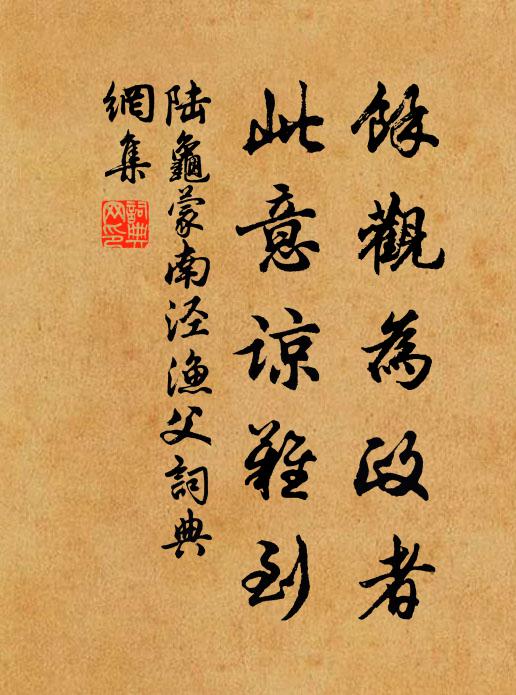 餘觀為政者
此意諒難到
陸龜蒙南涇漁父詞典
網集
詞典
网印